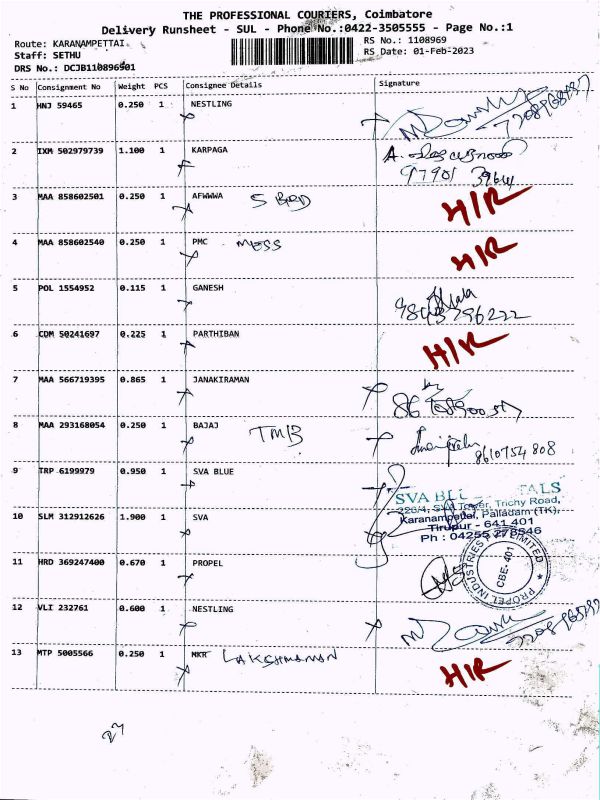 THE PROFESSIONAL COURIERS, Coimbatore
Delivery Runsheet - SUL - Phone No.:0422-3505555 - Page No.:1
Route: KARANAMPETTAI
Staff: SETHU
DRS No.: DCJB110896901
RS No.: 1108969
RS Date: 01-Feb-2023
S No Consignment No Weight PCS Consignee Details Signature
1 HNJ 59465 0.250 1 NESTLING
2 IXM 502979739 1.100 1 KARPAGA
97901 39644
3 MAA 858602501 0.250 1 AFWWWA S BRD H/R
4 MAA 858602540 0.250 1 PMC MESS H/R
5 POL 1554952 0.115 1 GANESH
9843796222
6 CDM 50241697 0.225 1 PARTHIBAN H/R
7 MAA 566719395 0.865 1 JANAKIRAMAN
8 MAA 293168054 0.250 1 BAJAJ TMB 8610754 808
9 TRP 6199979 0.950 1 SVA BLUE
SVA BLUE METALS
226/4, SVA Tower, Trichy Road,
10 SLM 312912626 1.900 1 SVA
Karanampettai, Palladam (TK),
Tirupur - 641 401
Ph : 04255 278546
11 HRD 369247400 0.670 1 PROPEL
PROPEL INDUSTRIES PVT LIMITED
CBE-401
12 VLI 232761 0.600 1 NESTLING
13 MTP 5005566 0.250 1 MKR LAKSHMANAN H/R